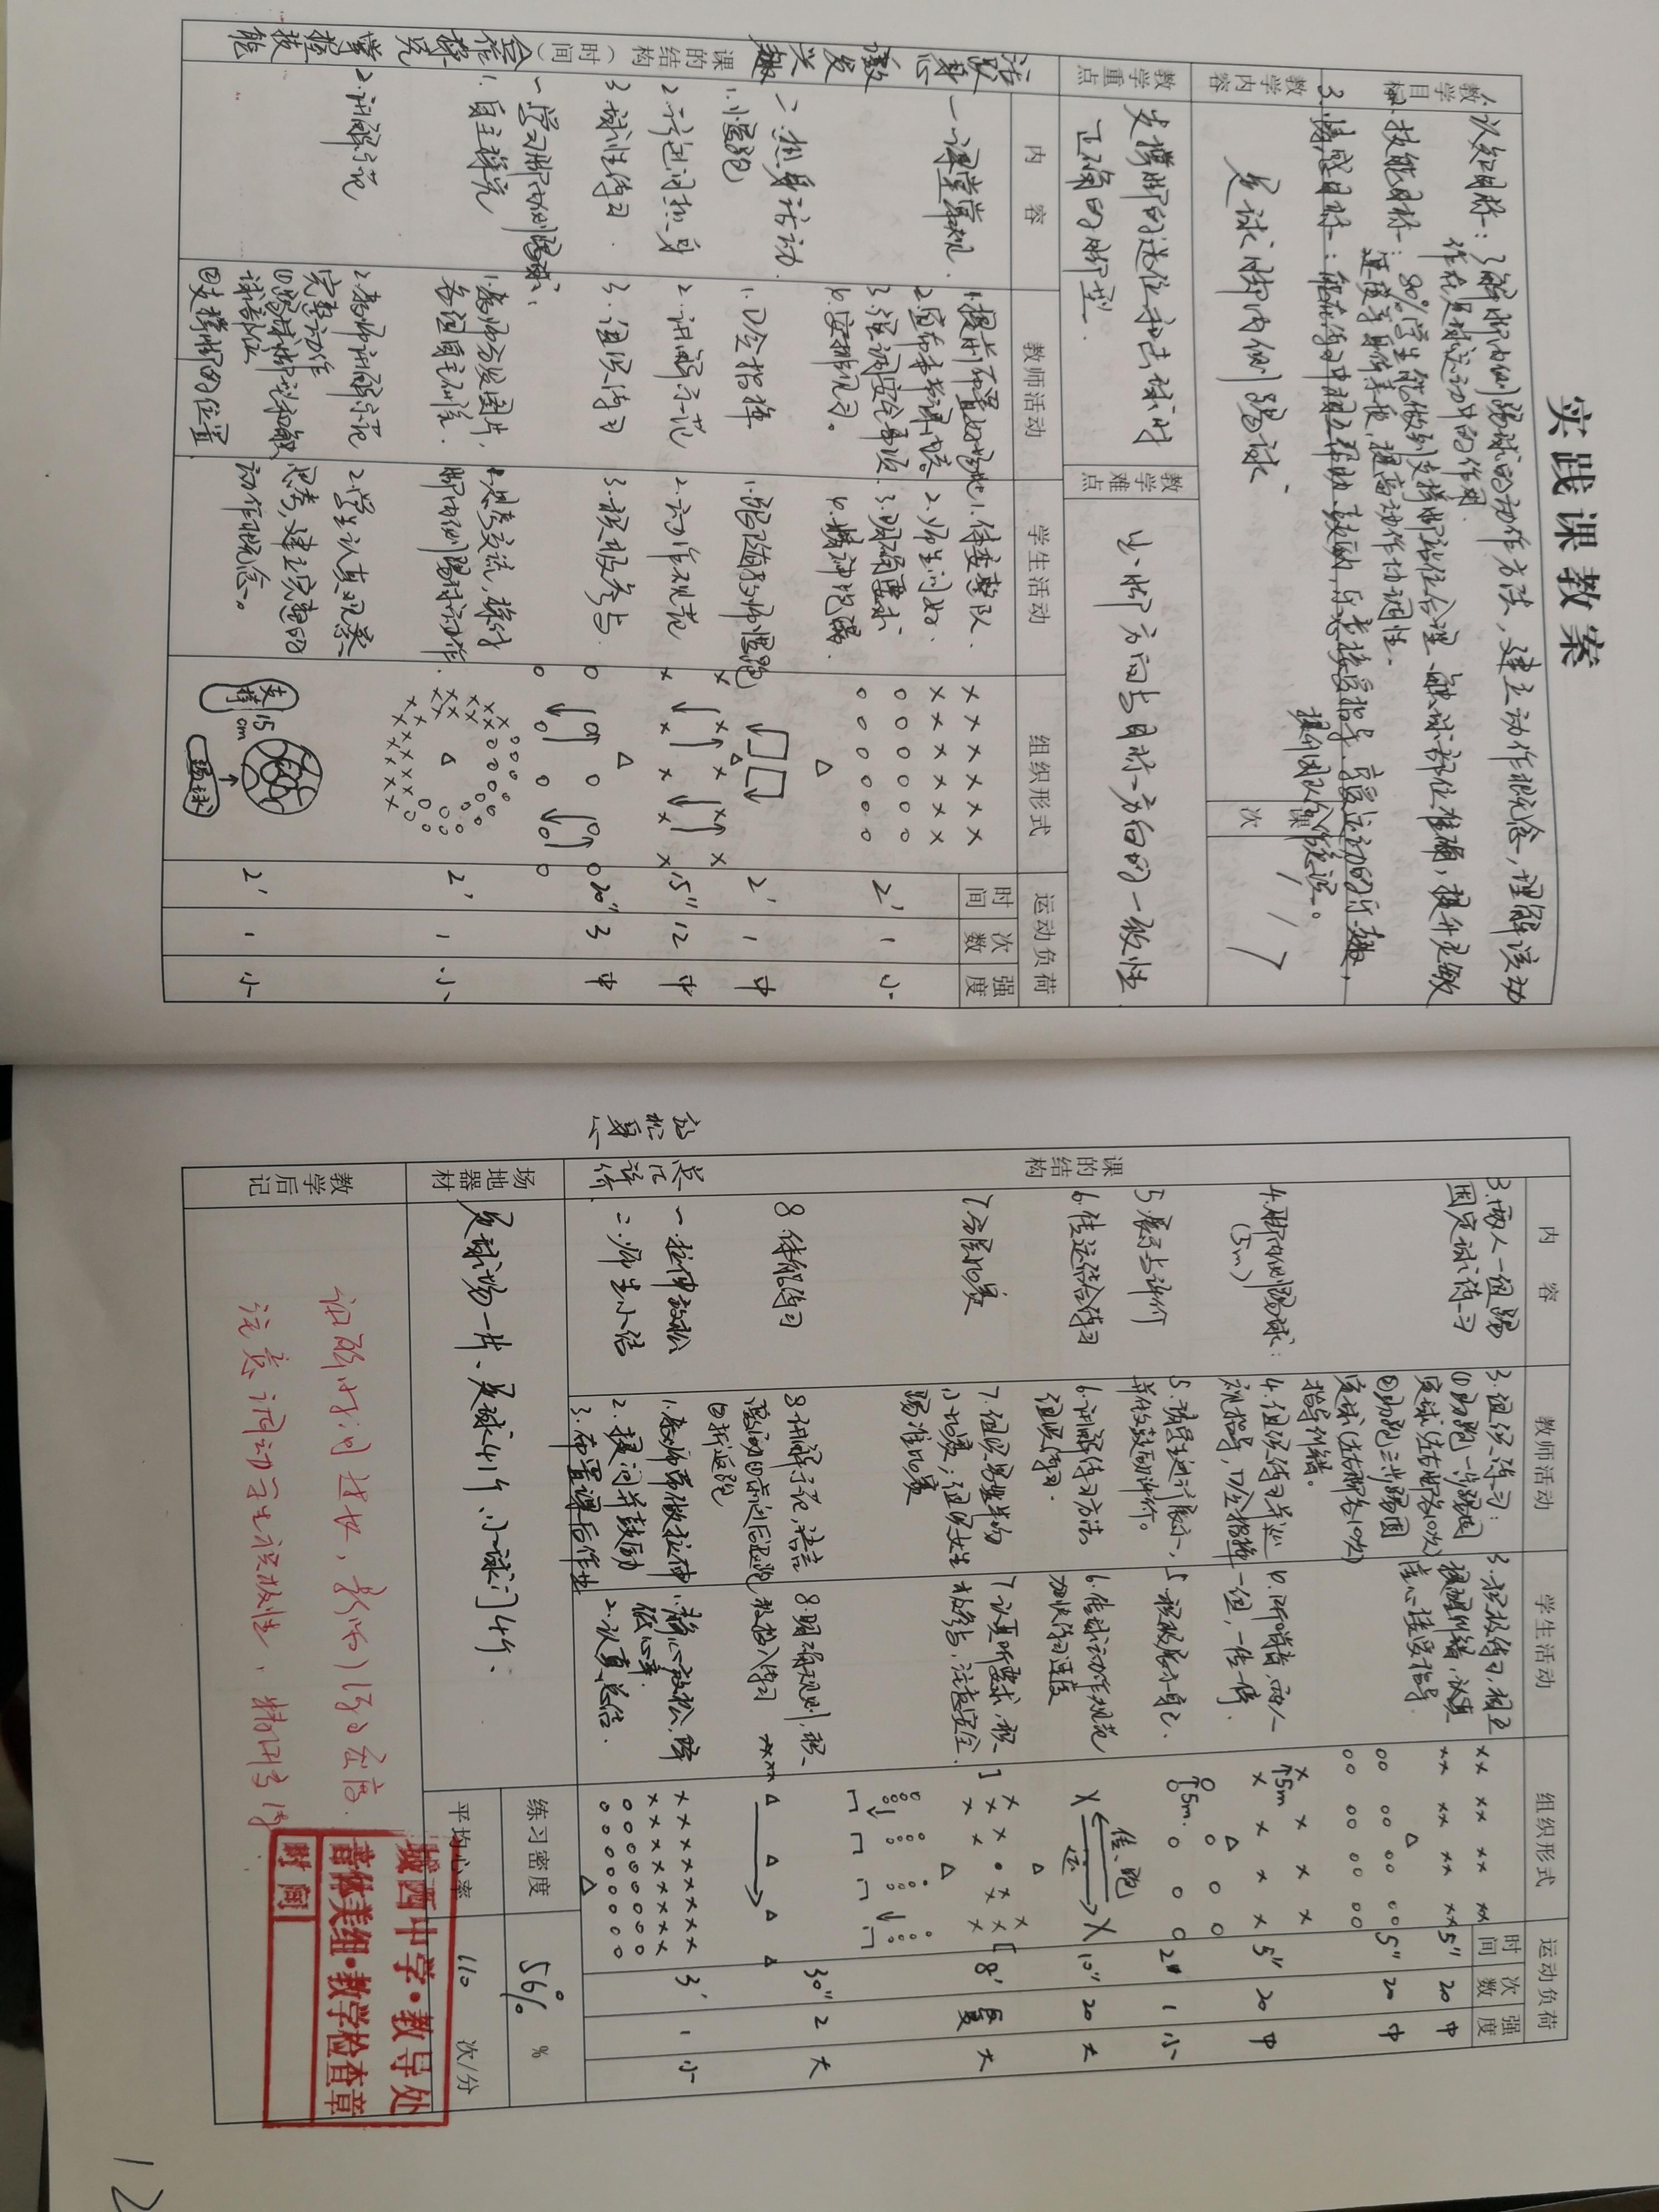 实践课教案
教学目标
1.认知目标：了解脚内侧踢球的动作方法，建立动作概念，理解该动
作在足球运动中的作用。
2.技能目标：80%学生能做到支撑脚站位合理、触球部位准确，提升灵敏
速度等身体素质，提高动作协调性。
3.情感目标：能在练习中相互帮助、鼓励，乐意接受指导，享受运动的乐趣，
提升团队合作意识。
教学内容
足球脚内侧踢球
课次
17
教学重点
支撑脚的选位和击球时
正确的脚型
教学难点
出脚方向与目标方向的一致性
课的结构（时间）
内容
教师活动
学生活动
组织形式
运动负荷
时间
次数
强度
活跃身心激发兴趣
一、课堂常规
1.提前布置好场地
2.宣布本节课内容
3.强调安全事项
4.安排见习。
1.体委整队
2.师生问好
3.明确要求
4.精神饱满
2' 1 小
二、热身活动
1.小慢跑
1.口令指挥
1.跟随教师慢跑
2' 1 中
2.行进间热身
2.讲解示范
2.动作规范
15" 12 中
3.诱导性练习
3.组织练习
3.积极参与
20" 3 中
合作探究掌握技能
一、学习脚内侧踢球：
1.自主探究
1.教师下发图片，
各组自主研讨。
1.思考交流，探讨
脚内侧踢球动作
2' 1 小
2.讲解示范
2.教师讲解示范
完整动作
①踢球脚型和触
球部位
②支撑脚的位置
2.学生认真观察
思考，建立完整的
动作概念。
支撑
15cm
踢球
2' 1 小
课的结构
内容
教师活动
学生活动
组织形式
运动负荷
时间
次数
强度
3.两人一组踢
固定球练习
3.组织练习：
①助跑一步踢固
定球（左右脚各10次）
②助跑三步踢固
定球（左右脚各10次）
指导纠错。
3.积极练习，相互
提醒纠错，认真
虚心接受指导
5" 20 中
5" 20 中
4.脚内侧踢球：
（5m）
4.组织练习并巡
视指导，口令指挥
4.听哨音，两人
一组，一传一停
5m
5" 20 中
5.展示与评价
5.请学生进行展示，
并作鼓励评价。
5.积极展示自己
5m
2' 1 小
6.传运结合练习
6.讲解练习方法
组织练习
6.传球动作规范
加快练习速度
传、跑
运
10" 20 大
7.分层比赛
7.组织男生半场
小比赛；组织女生
踢准比赛
7.认真听要求，积
极参与，注意安全
8' 大
8.体能练习
8.讲解示范，语言
激励
①前进后退跑
②折返跑
8.明确规则，积
极投入练习
30" 2 大
放松身心总结评价
一、拉伸放松
二、师生小结
1.教师带做拉伸
2.提问并鼓励
3.布置课后作业
1.静心放松，降
低心率
2.认真总结
3' 1 小
场地器材
足球场一片、足球41个、小球门4个、
练习密度
56% %
平均心率
110 次/分
教学后记
讲解时间过长，影响了练习密度.
注意调动学生积极性，精讲多练
城西中学·教导处
音体美组·教学检查章
时间
12